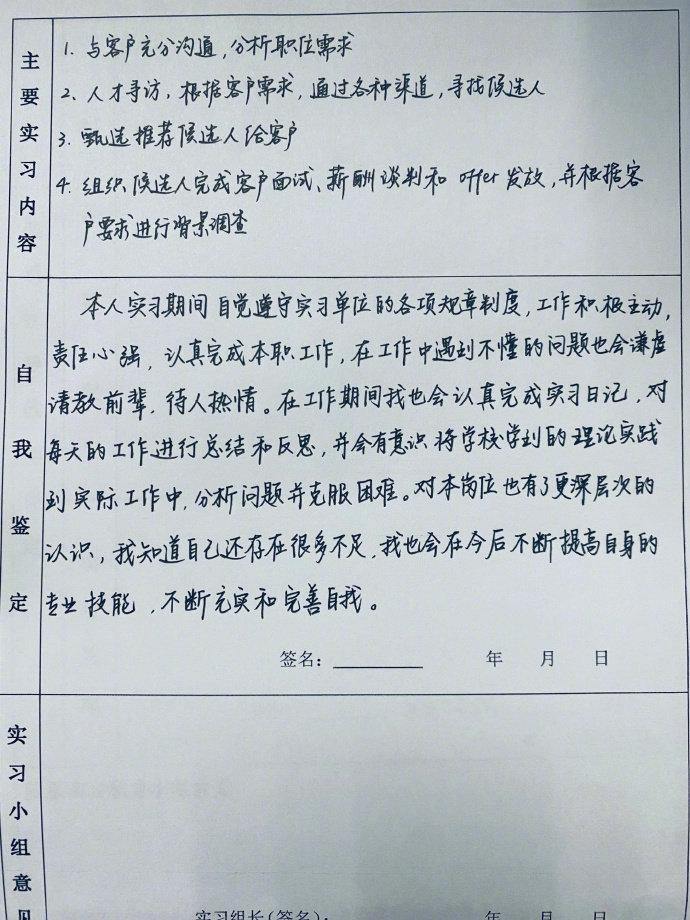 主要实习内容
1. 与客户充分沟通，分析职位需求
2、人才寻访，根据客户需求，通过各种渠道，寻找候选人
3. 甄选推荐候选人给客户
4. 组织候选人完成客户面试、薪酬谈判和offer发放，并根据客
户要求进行背景调查
自我鉴定
本人实习期间自觉遵守实习单位的各项规章制度，工作积极主动，
责任心强，认真完成本职工作，在工作中遇到不懂的问题也会谦虚
请教前辈，待人热情。在工作期间我也会认真完成实习日记，对
每天的工作进行总结和反思，并会有意识将学校学到的理论实践
到实际工作中，分析问题并克服困难。对本岗位也有了更深层次的
认识，我知道自己还存在很多不足，我也会在今后不断提高自身的
专业技能，不断充实和完善自我。
签名： 年 月 日
实习小组意见
实习组长（签名）： 年 月 日